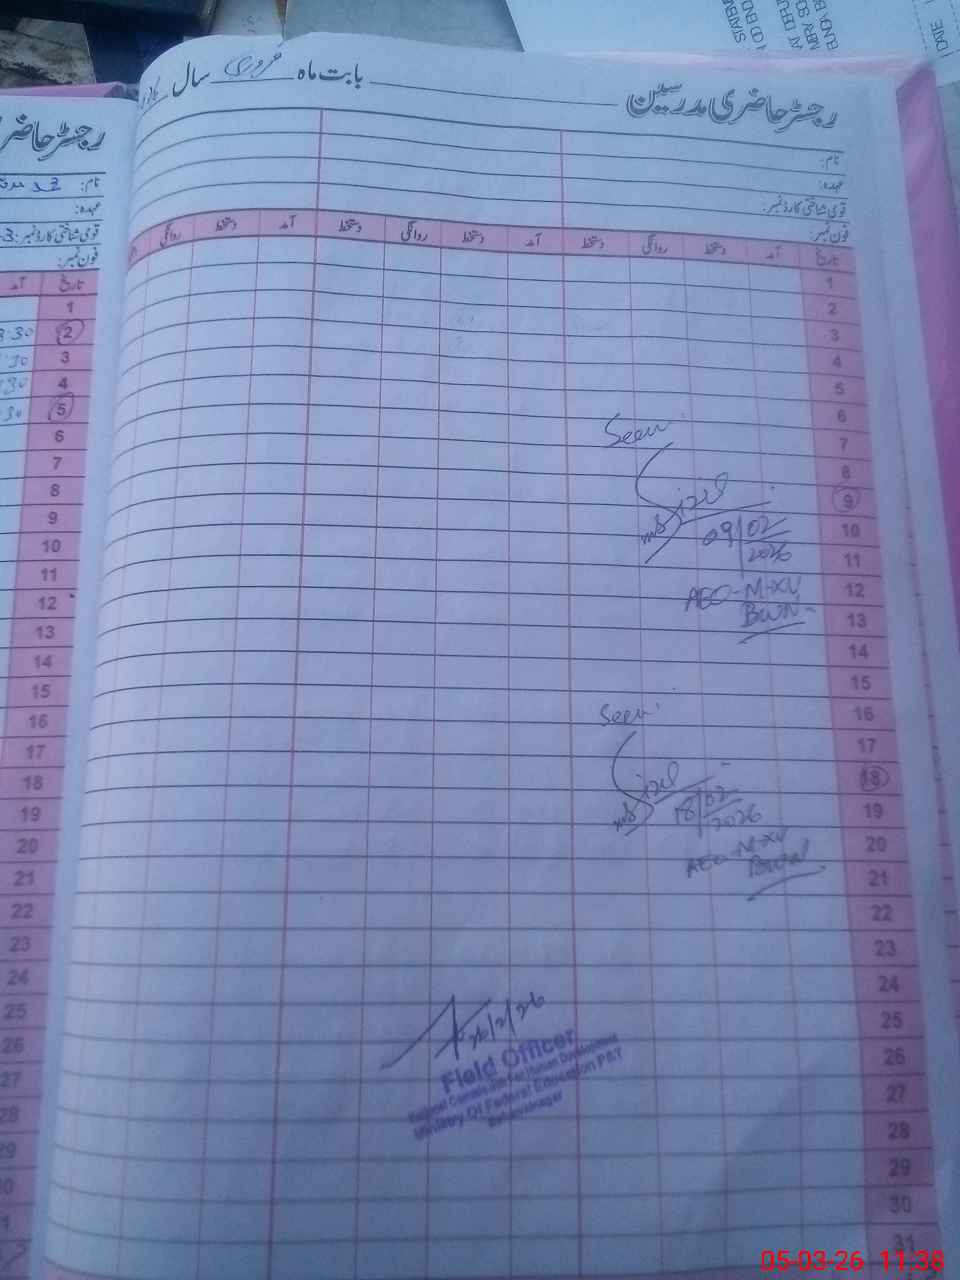 رجسٹر حاضری مدرسین بابت ماہ فروری سال
نام:
عہدہ:
قومی شناختی کارڈ نمبر:
فون نمبر:
تاریخ آمد دستخط روانگی دستخط آمد دستخط روانگی دستخط آمد دستخط روانگی
1
2
3
4
5
6
7
8
9
10
11
12
13
14
15
16
17
18
19
20
21
22
23
24
25
26
27
28
29
30
31
Seen
09/02
2026
AEO-M-XV
BWN
Seen
18/02
2026
AEO-M-XV
BWN
Field Officer
National Commission For Human Development
Ministry Of Federal Education P&T
Bahawalnagar
رجسٹر حاضری
نام:
عہدہ:
قومی شناختی کارڈ نمبر:
فون نمبر:
تاریخ آمد
1
2
3
4
5
6
7
8
9
10
11
12
13
14
15
16
17
18
19
20
21
22
23
24
25
26
27
28
29
DATE
05-03-26 11:38